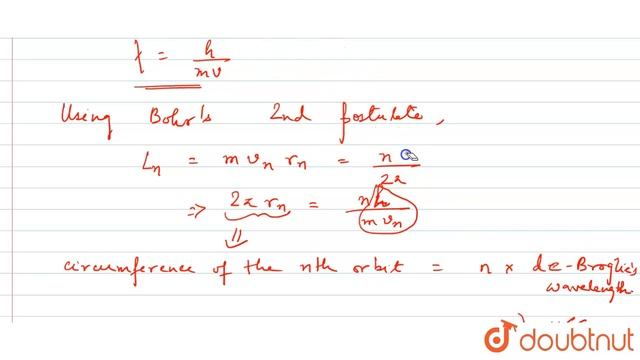 λ = h/mv
Using Bohr's 2nd postulate,
Lₙ = m vₙ rₙ = n/2π
⇒ 2π rₙ = nh/m vₙ
circumference of the nth orbit = n × de-Broglie's
wavelength.
doubtnut